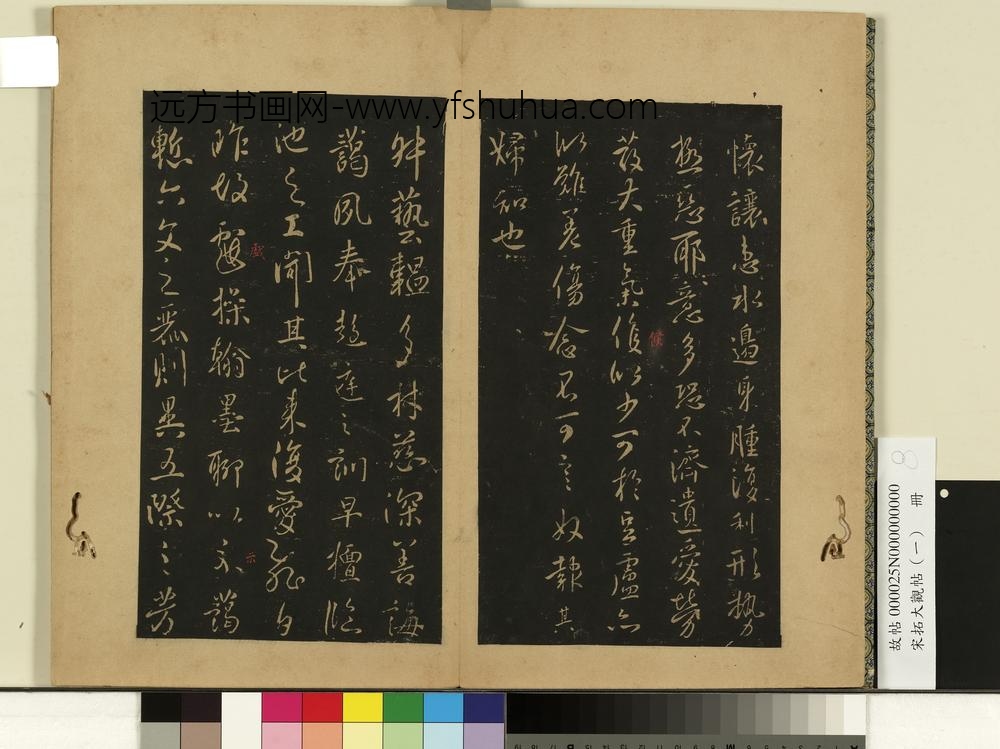 远方书画网-www.yfshuhua.com
懷讓患水邊身腫復利形勢
極惡耶意多恐不濟遺愛勞
發大重氣復似少可於豆盧
候
似難差傷念不可言奴報其
婦知也
叔藝韞多材慈深善誨
藹夙奉趍庭之訓早擅臨
池之工聞其比來復愛飛白
昨故戲操翰墨聊以示藹
戲
示
慙六文之麗則異五際之芳
故帖 000025N000000000
宋拓大觀帖（一） 冊
8